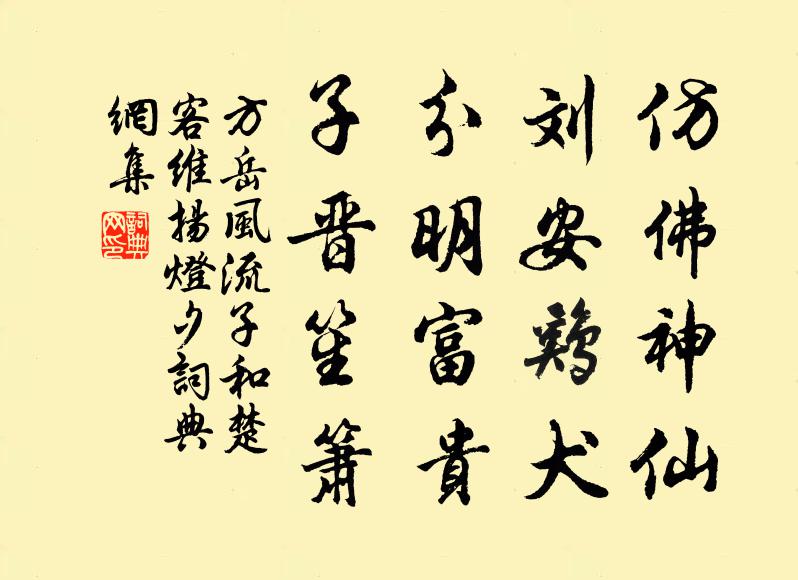 仿佛神仙
刘安鷄犬
分明富貴
子晋笙簫
方岳風流子和楚
客維揚燈夕詞典
網集
詞典
网印